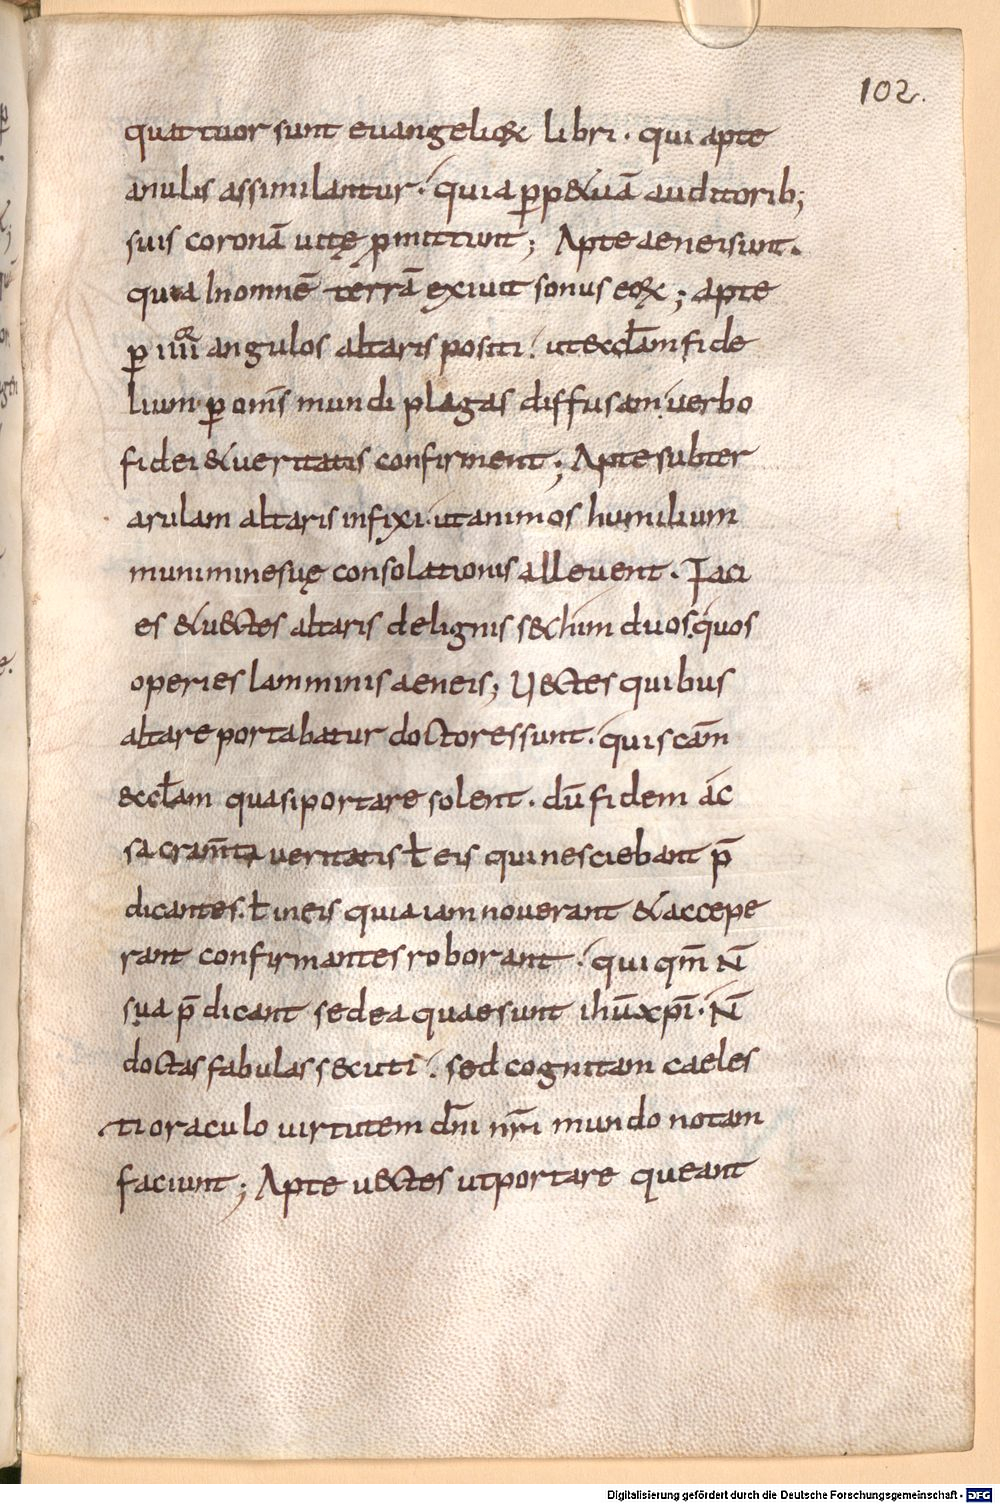 102.
quattuor sunt euangelioꝝ libri · qui apte
anulis assimilantur · quia ꝑpetuā auditorib;
suis coronā uitę ꝓmittunt ; Apte aenei sunt ·
quia In omnē terrā exiuit sonus eoꝝ ; apte
ꝑ iiiiᵒʳ angulos altaris positi · ut eccłam fide
lium ꝑ om̄s mundi plagas diffusam uerbo
fidei & ueritatis confirment ; Apte subter
arulam altaris infixi · ut animos humilium
munimine suę consolationis alleuent · Faci
es & uectes altaris de lignis sethim duos · quos
operies lamminis aeneis ; Uectes quibus
altare portabatur doctores sunt · qui scām
eccłam quasi portare solent · dū fidem ac
sacram̄ta ueritatis ł eis qui nesciebant p̄
dicantes · ł in eis quia iam nouerant & accepe
rant confirmantes roborant · qui qm̄ N̄
sua p̄dicant sed ea quae sunt ihū xp̄i · N̄
doctas fabulas secuti · sed cognitam caeles
ti oraculo uirtutem dn̄i nr̄i mundo notam
faciunt ; Apte uectes ut portare queant
Digitalisierung gefördert durch die Deutsche Forschungsgemeinschaft - DFG